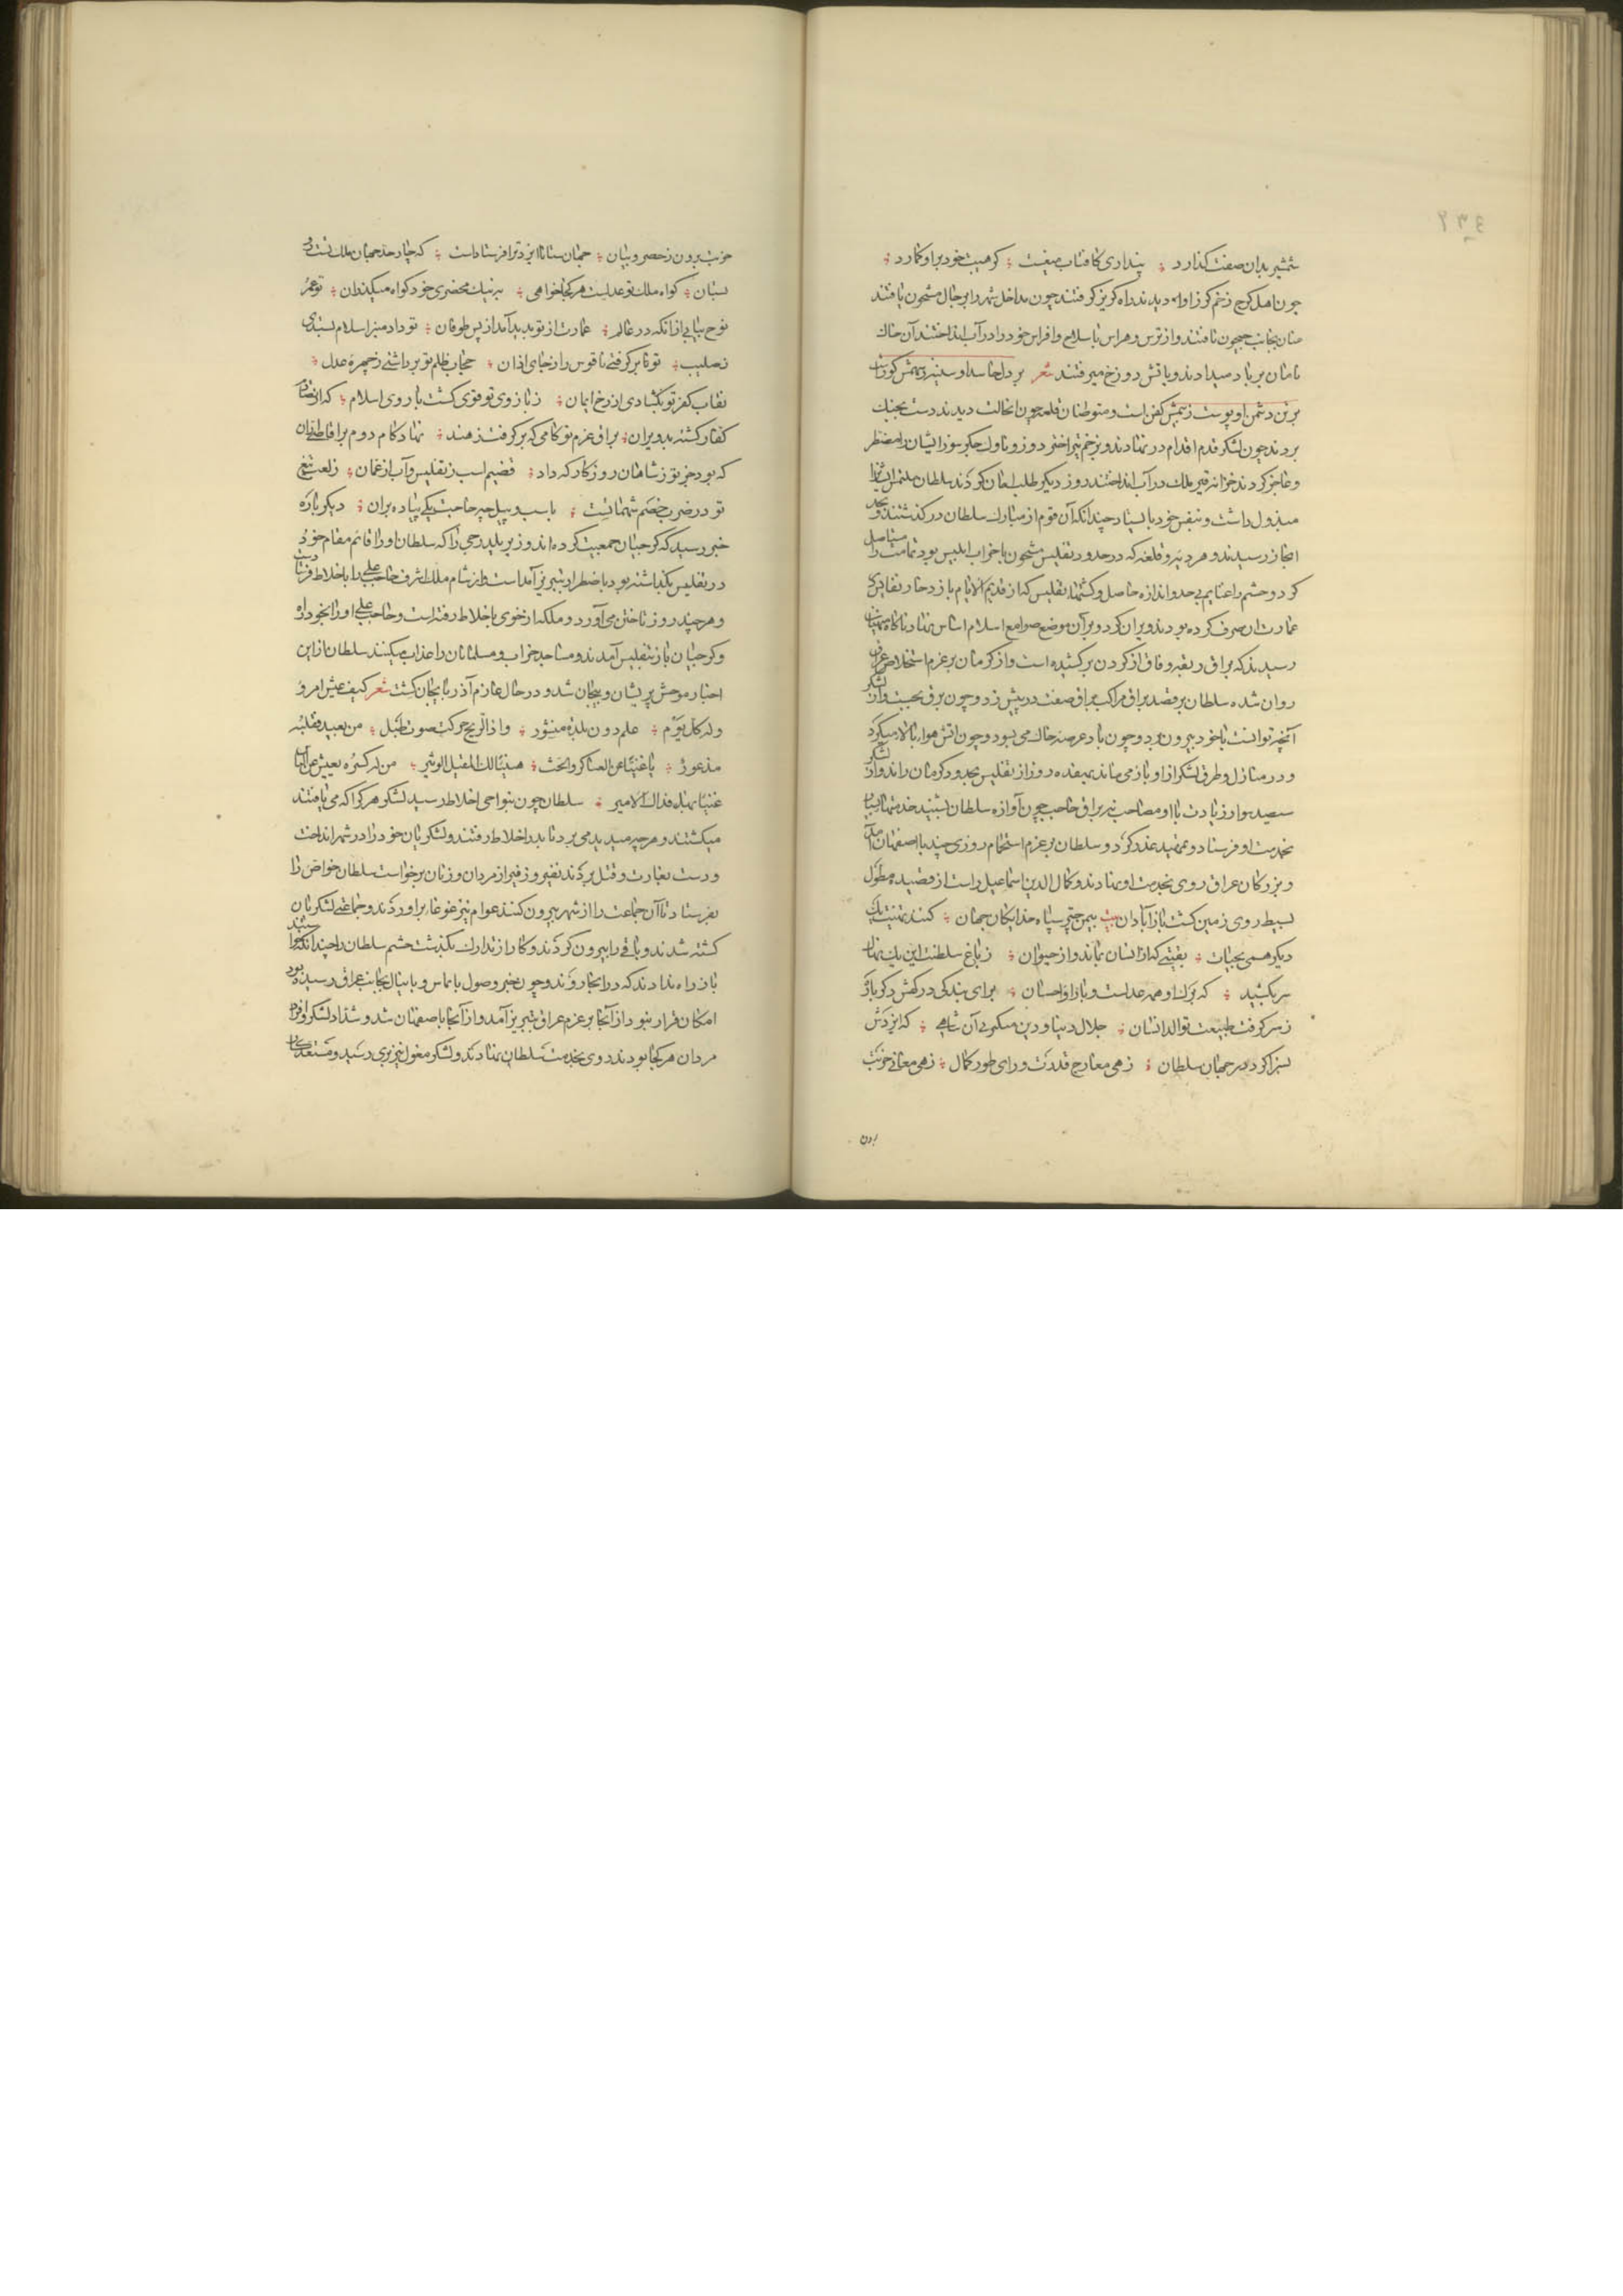 ۲۳۶
شمشیر بدان صفت گذارد ؛ پنداری کافتاب میغیست ؛ کز هیبت خود براو کارد ؛
چون اهل کرج زخم کرز اوله دیدند راه کریز کرفتند چون مداخل شهر را برجال مشحون یافتند
عنان بجانب جیحون تافتند و از ترس و هراس با سلاح و افراس خود را در آب انداختند آن خاک
ناامان بر باد میدادند و با تش دوزخ میرفتند شعر بر دل حاسد او سینه
بر تن دشمن او پوست زبیمش کفن است و متوطنان قلعه چون انحالت دیدند دست بجنک
بردند چون لشکر قدم اقدام در نهادند و بزخم تیر اختر دوز و ناوک جکر سوز ایشان را مضطر
و عاجز کردند خزانه قیز ملک در آب انداختند روز دیکر طلب امان کردند سلطان ملتمس ایشانرا
مبذول داشت و بنفس خود بایستاد چندانکه آن قوم از مبارک سلطان درکذشتند و بحد
ابخاز رسیدند و هر دیه و قلعه که در حدود تفلیس مشحون با حزاب ابلیس بود تمامت را مستاصل
کرد و حشم را غنایم بی حد و اندازه حاصل و کشتها تفلیس که از قدیم الایام باز ذخایر نفایس
عمارت ان صرف کرده بودند ویران کرد و بر آن موضع صوامع اسلام اساس نهاد ناکاه منهیان
رسیدند که براق ربقه وفاق از کردن برکشیده است و از کرمان بر عزم استخلاص عراق
روان شده سلطان بر قصد براق مراکب براق صفت در پیش زد و چون برق بجست و از لشکر
آنچه توانست با خود بیرون برد و چون باد عرصه خاک می بسود و چون اتش هواء بالا میکرد
و در منازل و طرق لشکر از او باز می ماند بهفده روز از تفلیس بحدود کرمان راند و از لشکر
سیصد سوار زیادت با او مصاحب نبود براق حاجب چون آوازه سلطان بشنید خدمتها
بخدمت او فرستاد و تمهید عذر کرد و سلطان بر عزم استجمام روزی چند با اصفهان آمد
و بزرکان عراق روی بخدمت او نهادند و کمال الدین اسماعیل راست از قصیده مطول
بسیط روی زمین کشت باز آبادان بیت بیمن چتر سپاه خدایکان جهان ؛ کنند تهنیت یک
دیکر همی بحیات ؛ بقیتی که از انسان بماند و از حیوان ؛ ز باغ سلطنت این یک نهال
سر بکشید ؛ که برک او همه عدلست و بار او احسان ؛ برای بندکی درکهش دکر باره
ز سر کرفت طبیعت توالد انسان ؛ جلال دنیا و دین منکبرنی آن شاهی ؛ که ایزدش
بسزا کرد در جهان سلطان ؛ زهی معارج قدرت ورای طور کمال ؛ زهی معانی خوبت
برون
خوبت برون ز حصر و بیان ؛ جهان ستانا ایزد ترا فرستاد است ؛ که چار حد جهان ملک تست رو
بستان ؛ کواه ملک تو عدلست هر کجا خواهی ؛ نیز نیک محضری خود کواه میکذران ؛ تو عمر
نوح بیابی از انکه در عالم ؛ عمارت از تو پدید آمد از پس طوفان ؛ تو داد منبر اسلام بستدی
ز صلیب ؛ تو تا بر کرفتی ناقوس را ز جای اذان ؛ حجاب ظلم تو برداشتی ز چهره عدل ؛
نقاب کفر تو بکشادی از رخ ایمان ؛ ز بازوی تو قوی کشت بازوی اسلام ؛ که از
کفار کشته بد ویران ؛ براق عزم تو کامی که بر کرفت ز هند ؛ نهاد کام دوم بر اقاصی اران
که بود جز تو ز شاهان روزکار که داد ؛ قضیم اسب ز تفلیس و آب از عمان ؛ ز لعب تیغ
تو در ضرب خصم شهماتست ؛ باسب و پیل چه حاجت یکی پیاده بران ؛ دیکر باره
خبر رسید که کرجیان جمعیت کرده اند و وزیر یلدرجی را که سلطان او را قائم مقام خود
در تفلیس بکذاشته بود باضطرار بتبریز آمداست و از شام ملک اشرف حاجب علی را باخلاط فرستاد
و هر چند روز تاختن می آورد و ملکه از خوی باخلاط رفته است و حاجب علی او را بخود راه
و کرجیان باز بتفلیس آمدند و مساجد خراب و مسلمانان را عذاب میکنند سلطان از این
اخبار موحش پریشان و پیچان شد و در حال عازم آذربایجان کشت شعر کیف عیش امرو
وله کل یوم ؛ علم دون بلدة منشور ؛ و اذا الریح حرکت صوت طبل ؛ من بعید فقلبه
مذعور ؛ یا غنیا عن العساکر والبحث ؛ هنیا لک المقیل الوثیر ؛ من له کسره یعیش
غنیا بهاء فذاک الامیر ؛ سلطان چون بنواحی اخلاط رسید لشکر هر کرا که می یافتند
میکشتند و هر چه میدید می برد تا بدر اخلاط رفتند و لشکریان خود را در شهر انداخت
و دست بغارت و قتل بردند نفیر و زفیر از مردان و زنان برخواست سلطان خواص را
بفرستاد تا آن جماعت را از شهر بیرون کنند عوام نیز غوغا برآوردند و جماعتی لشکریان
کشته شدند و باقی را بیرون کردند و کار از تدارک بکذشت حشم سلطان را چندانکه
باز راه ندادند که در انجا روند و چون خبر وصول بایماس و باینال بجانب عراق رسیده بود
امکان قرار نبود از آنجا بر عزم عراق بتبریز آمد و از آنجا باصفهان شد و شذاذ لشکر و افراد
مردان هر کجا بودند روی بخدمت سلطان نهادند و لشکر مغول نیز بری رسید و مستعد